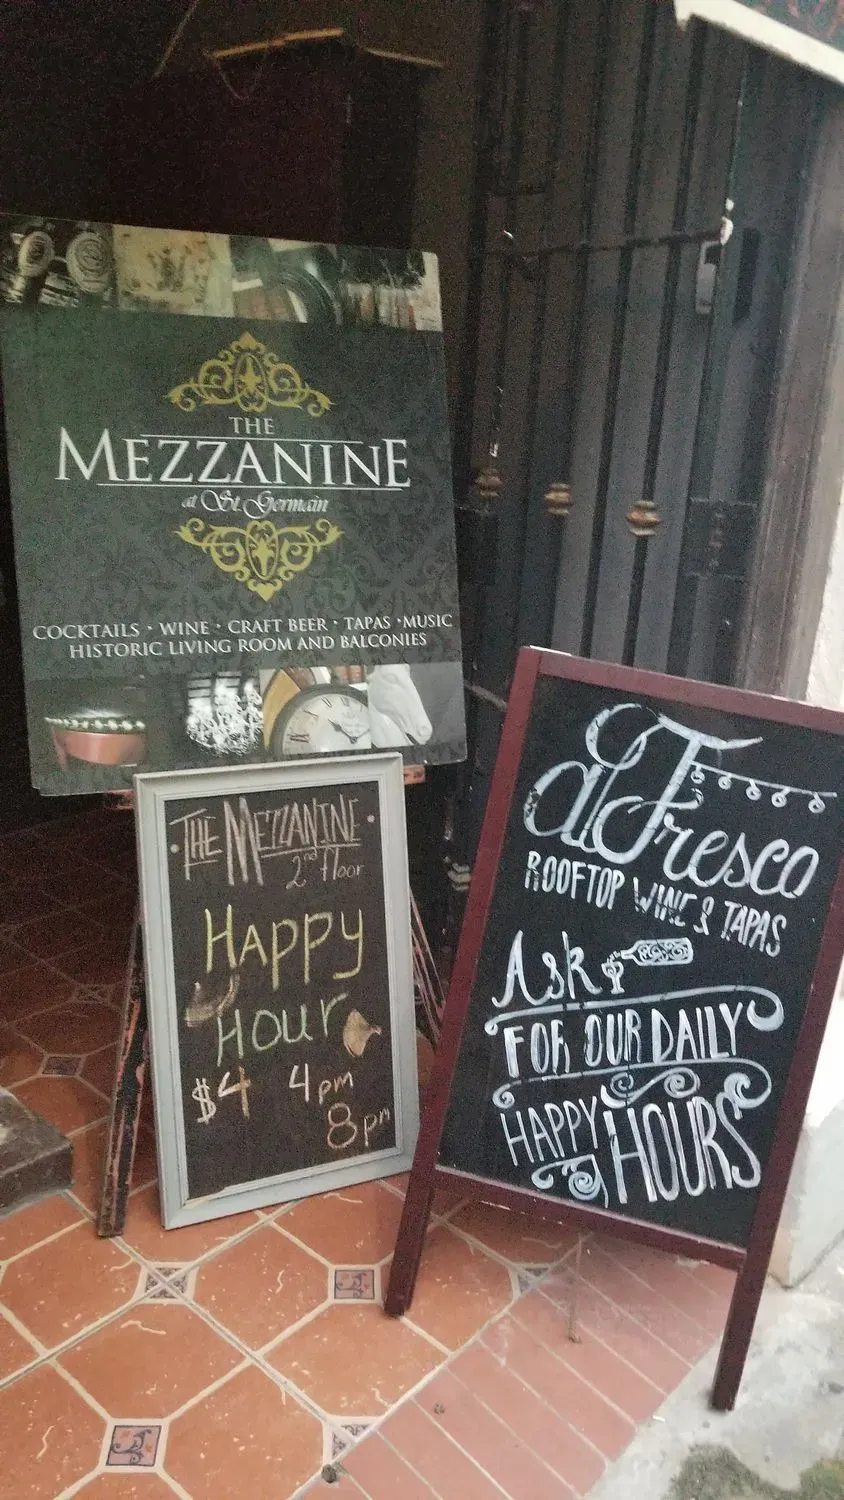 THE
MEZZANINE
at St. Germain
COCKTAILS · WINE · CRAFT BEER · TAPAS · MUSIC
HISTORIC LIVING ROOM AND BALCONIES
· THE MEZZANINE ·
2nd floor
HAPPY
HOUR
$4 4pm
8pm
al Fresco
ROOFTOP WINE & TAPAS
ASk
FOR OUR DAILY
HAPPY HOURS